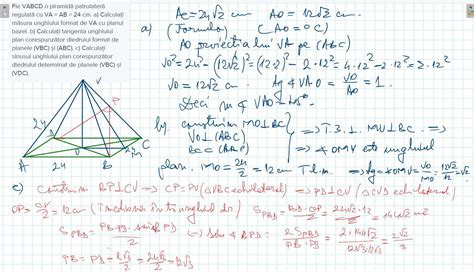 Fie VABCD o piramidă patrulateră
regulată cu VA = AB = 24 cm. a) Calculați
măsura unghiului format de VA cu planul
bazei. b) Calculați tangenta unghiului
plan corespunzător diedrului format de
planele (VBC) și (ABC). c) Calculați
sinusul unghiului plan corespunzător
diedrului determinat de planele (VBC) și
(VDC).
V
P
24
D
C
O
M
A
24
B
AC = 24√2 cm AO = 12√2 cm
a) (Formulă) (AO = OC)
AO proiecția lui VA pe (ABC)
VO² = 24² - (12√2)² = (12·2)² - 2·12² = 4·12² - 2·12² = 2·12²
VO = 12√2 cm. tg ∢VAO = VO/AO = 1.
Deci m ∢ VAO = 45°
b) construim MO⊥BC
VO⊥(ABC)
BC ⊂ (ABC)
⟹ T.3⊥. MV⊥BC. ⟹
⟹ ∢OMV este unghiul
plan. MO = 24/2 = 12 cm T.l.m. ⟹ tg ∢OMV = VO/MO = 12√2/12 = √2
c) Construim BP⊥CV ⟹ CP = PV (△VBC echilateral) ⟹ PD⊥CV (△CVD echilateral)
OP = CV/2 = 12 cm (mediana în tr. unghiul dr.) S PBD = BD·OP/2 = 24√2·12/2 = 144√2 cm²
S PBD = PB·PD·sin∢BPD/2 ⟹ sin ∢BPD = 2 S PBD/PB·PD = 2·144√2/12√3·12√3 = 2√2/3
PB = PD = l√3/2 = 24√3/2 = 12√3